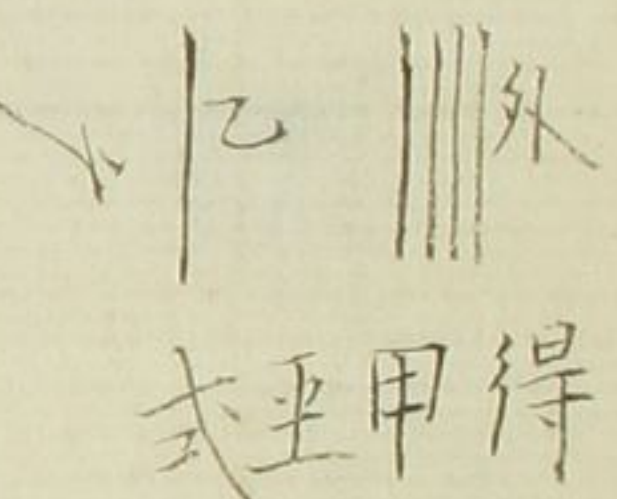 ||||外 |乙
得甲坙式